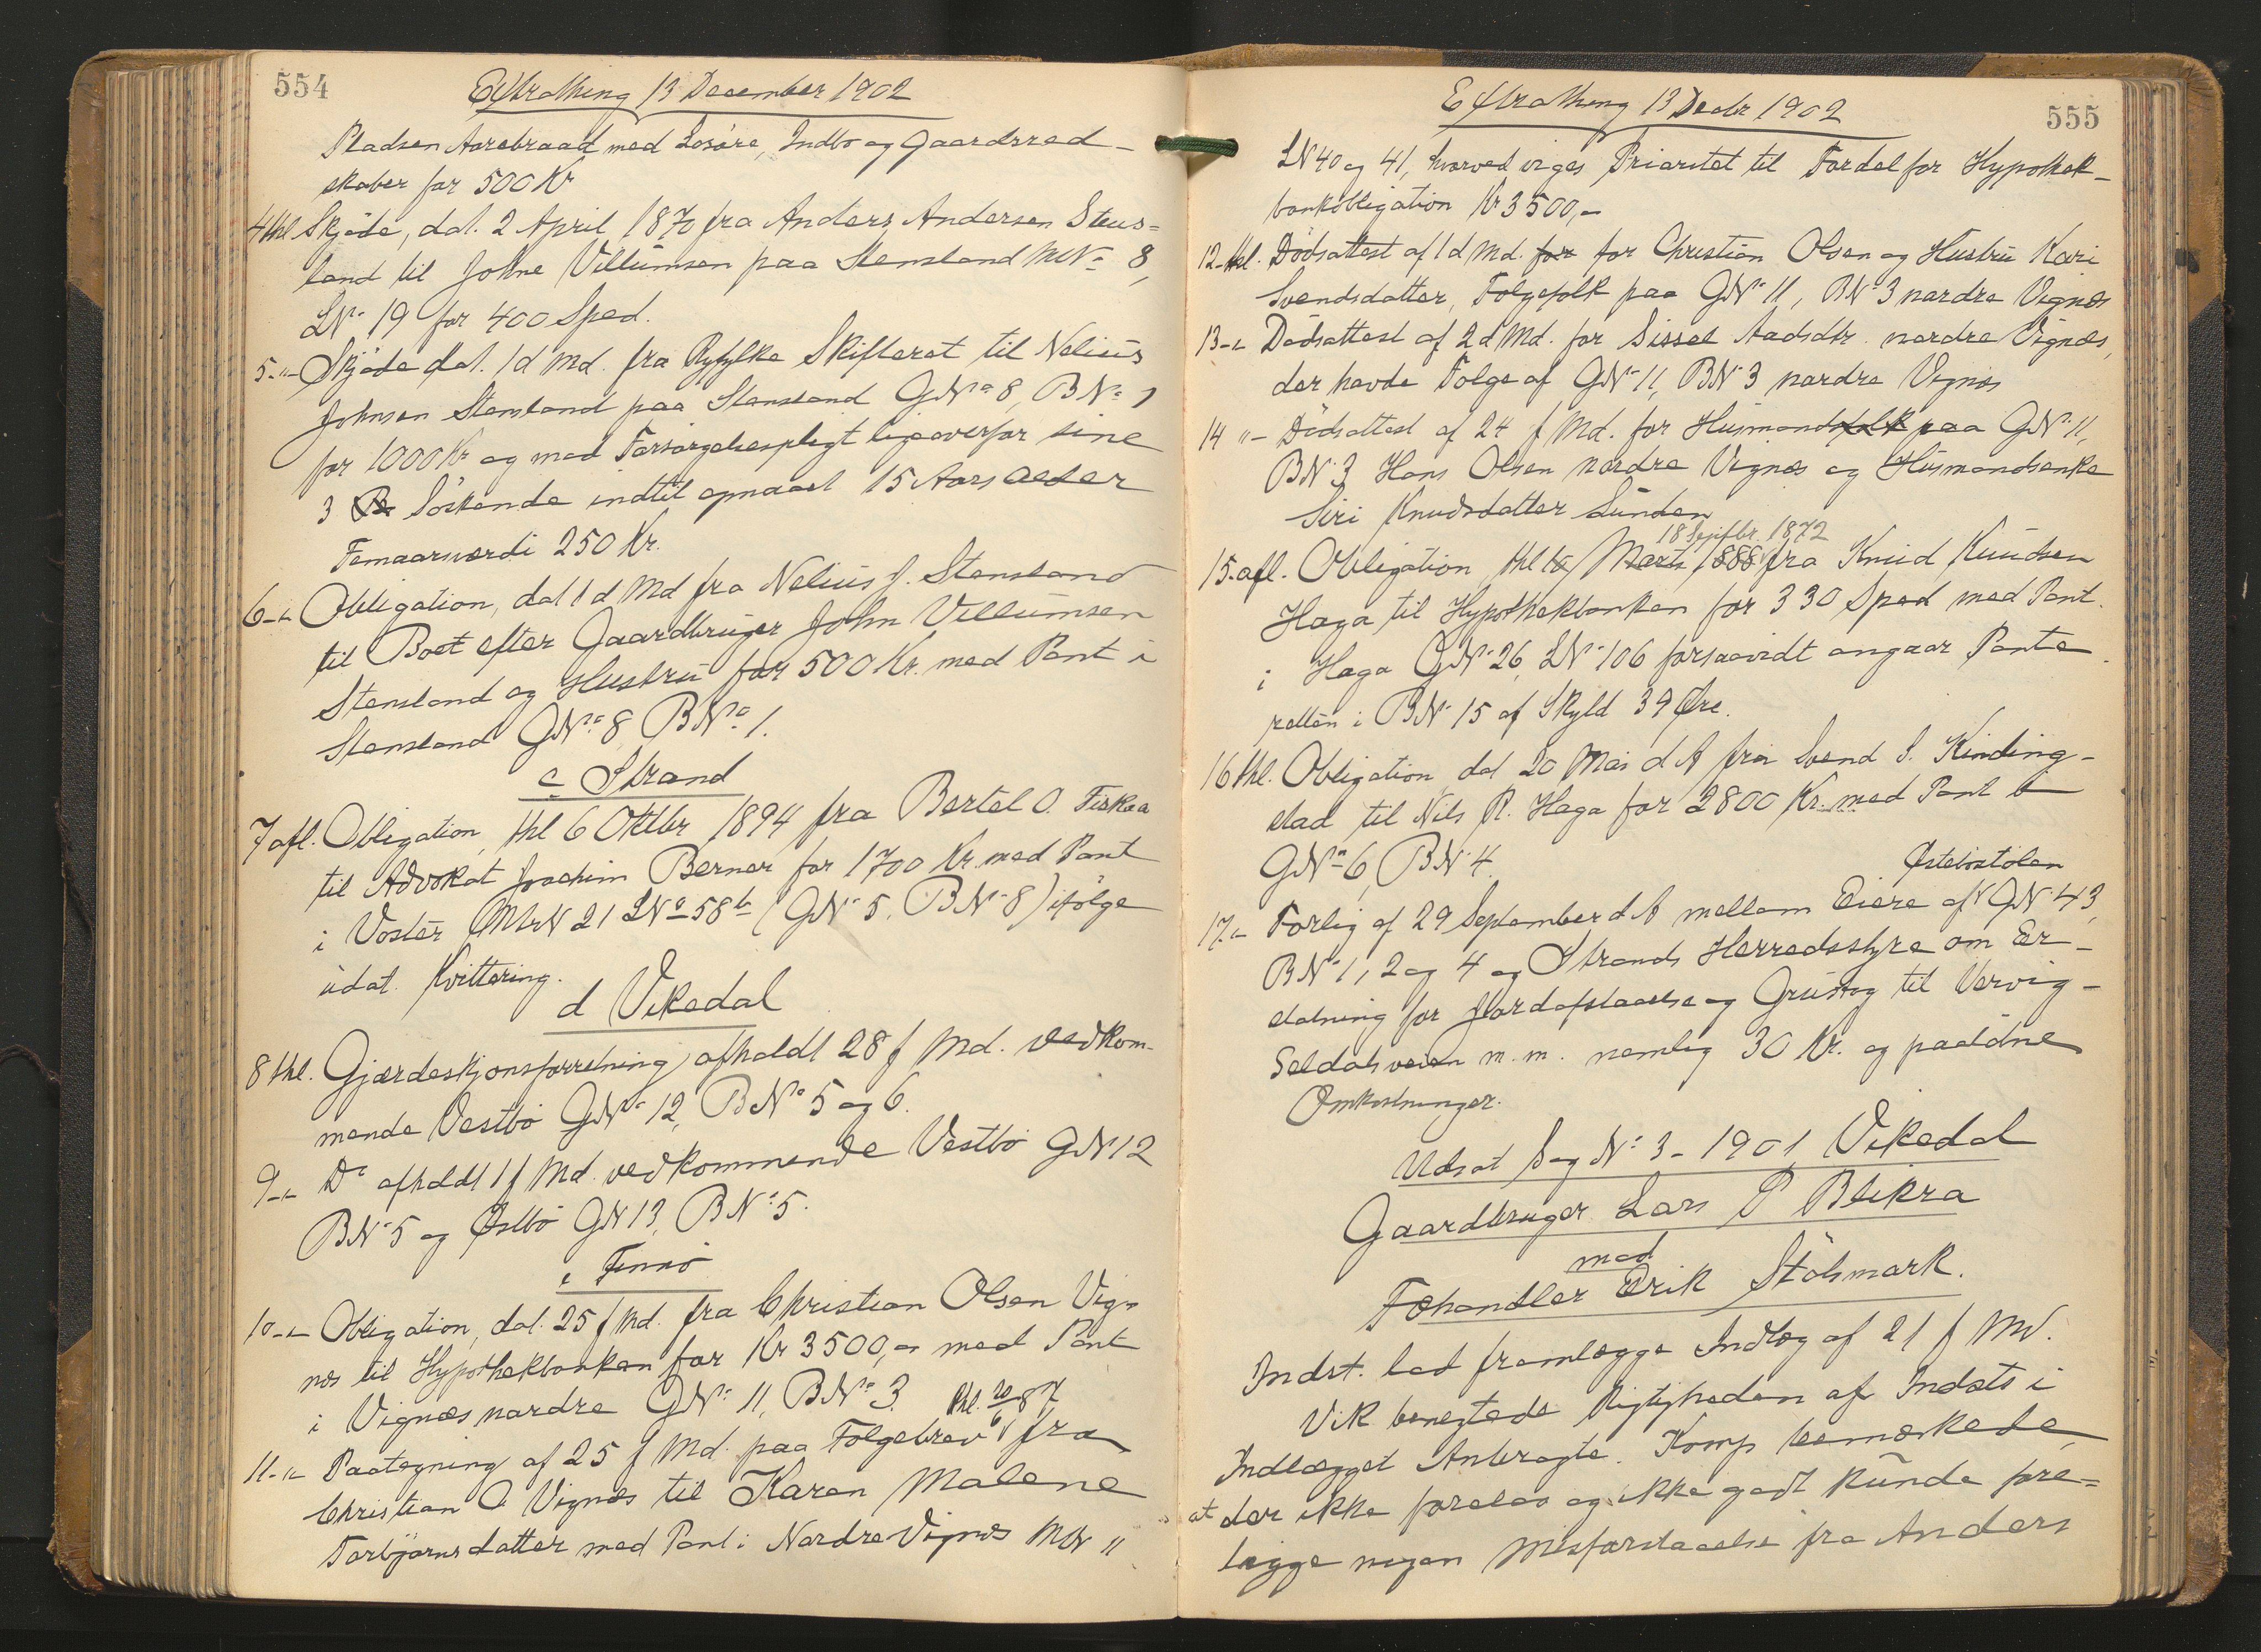 554
Extrathing 13 December 1902
Pladsen Aarebraad med Løsøre, Indbo og Gaardsred-
skaber for 500 Kr
4 thl Skjøde, dat. 2 April 1870 fra Anders Andersen Stens-
land til Johne Villumsen paa Stensland MNo 8,
LNo 19 for 400 Spd.
5 -"- Skjøde dat. 1 d Md. fra Ryfylke Skifteret til Nelius
Johnsen Stensland paa Stensland GNo 8, BNo 1
for 1000 Kr og med Forsørgelsespligt ligeoverfor sine
3 Søskende indtil opnaaet 15 Aars Alder
Femaarsværdi 250 Kr.
6 -"- Obligation, dat 1 d Md fra Nelius J. Stensland
til Boet efter Gaardbruger John Villumsen
Stensland og Hustru for 500 Kr. med Pant i
Stensland GNo 8 BNo 1.
c Strand
7 afl. Obligation, thl 6 Oktbr 1894 fra Bertel O. Fiskaa
til Advokat Joachim Berner for 1700 Kr. med Pant
i Voster MtrN 21 LNo 58b (GN 5, BN 8) ifølge
udat. Kvittering.
d Vikedal
8 thl. Gjærdeskjønsforretning afholdt 28 f Md. vedkom-
mende Vestbø GNo 12, BNo 5 og 6.
9 -"- Do afholdt 1 f Md. vedkommende Vestbø GN 12
BN 5 og Østbø GN 13, BN 5.
e Finnø
10 -"- Obligation, dat. 25 f Md. fra Christian Olsen Vig-
næs til Hypothekbanken for Kr 3500,- med Pant
i Vignæs nordre GNo 11, BNo 3. thl. 20/6 87
11 -"- Paategning af 25 f Md. paa Følgebrev fra
Christian O Vignæs til Karen Malene
Torbjørnsdatter med Pant i Nordre Vignæs MN 11
Extrathing 13 Decbr 1902
555
LN 40 og 41, hvorved viges Prioritet til Fordel for Hypothek-
bankobligation Kr 3500,-
12 thl. Dødsattest af 1 d Md. for for Christian Olsen og Hustru Kari
Svendsdatter, Følgefolk paa GN 11, BN 3 nordre Vignæs
13 -"- Dødsattest af 2 d Md. for Sissel Aadsdtr. nordre Vignæs,
der havde Følge af GN 11, BN 3 nordre Vignæs
14 -"- Dødsattest af 24 f Md. for Husmandsfolk paa GN 11,
BN 3 Hans Olsen nordre Vignæs og Husmandsenke
Siri Knudsdatter Sunden
18 Septbr. 1872
15 afl. Obligation, thl Marts 1888 fra Knud Knudsen
Haga til Hypothekbanken for 330 Spd med Pant
i Haga GN 26, LN 106 forsaavidt angaar Pante
retten i BN 15 af Skyld 39 Øre.
16 thl. Obligation, dat 20 Mai d A fra Svend S. Kinding-
stad til Nils R. Haga for 2800 Kr. med Pant i
GNo 6, BN 4.
Østebøstølen
17 -"- Forlig af 29 September d A mellem Eiere af GN 43,
BN 1, 2 og 4 og Strands Herredsstyre om Er-
statning for Jordafstaaelse og Grustag til Vervig-
Seldalsveien m. m. nemlig 30 Kr. og paadøne
Omkostninger.
Udsat Sag No 3 - 1901 Vikedal
Gaardbruger Lars P Blikra
mod
Fæhandler Erik Stølsmark.
Indst. lod fremlægge Indlæg af 21 f Md.
Vik benegtede Rigtigheden af Indsts i
Indlægget Anbragte. Komp bemærkede,
at der ikke forelaa og ikke godt kunde fore-
ligge nogen Misforstaaelse fra Anders